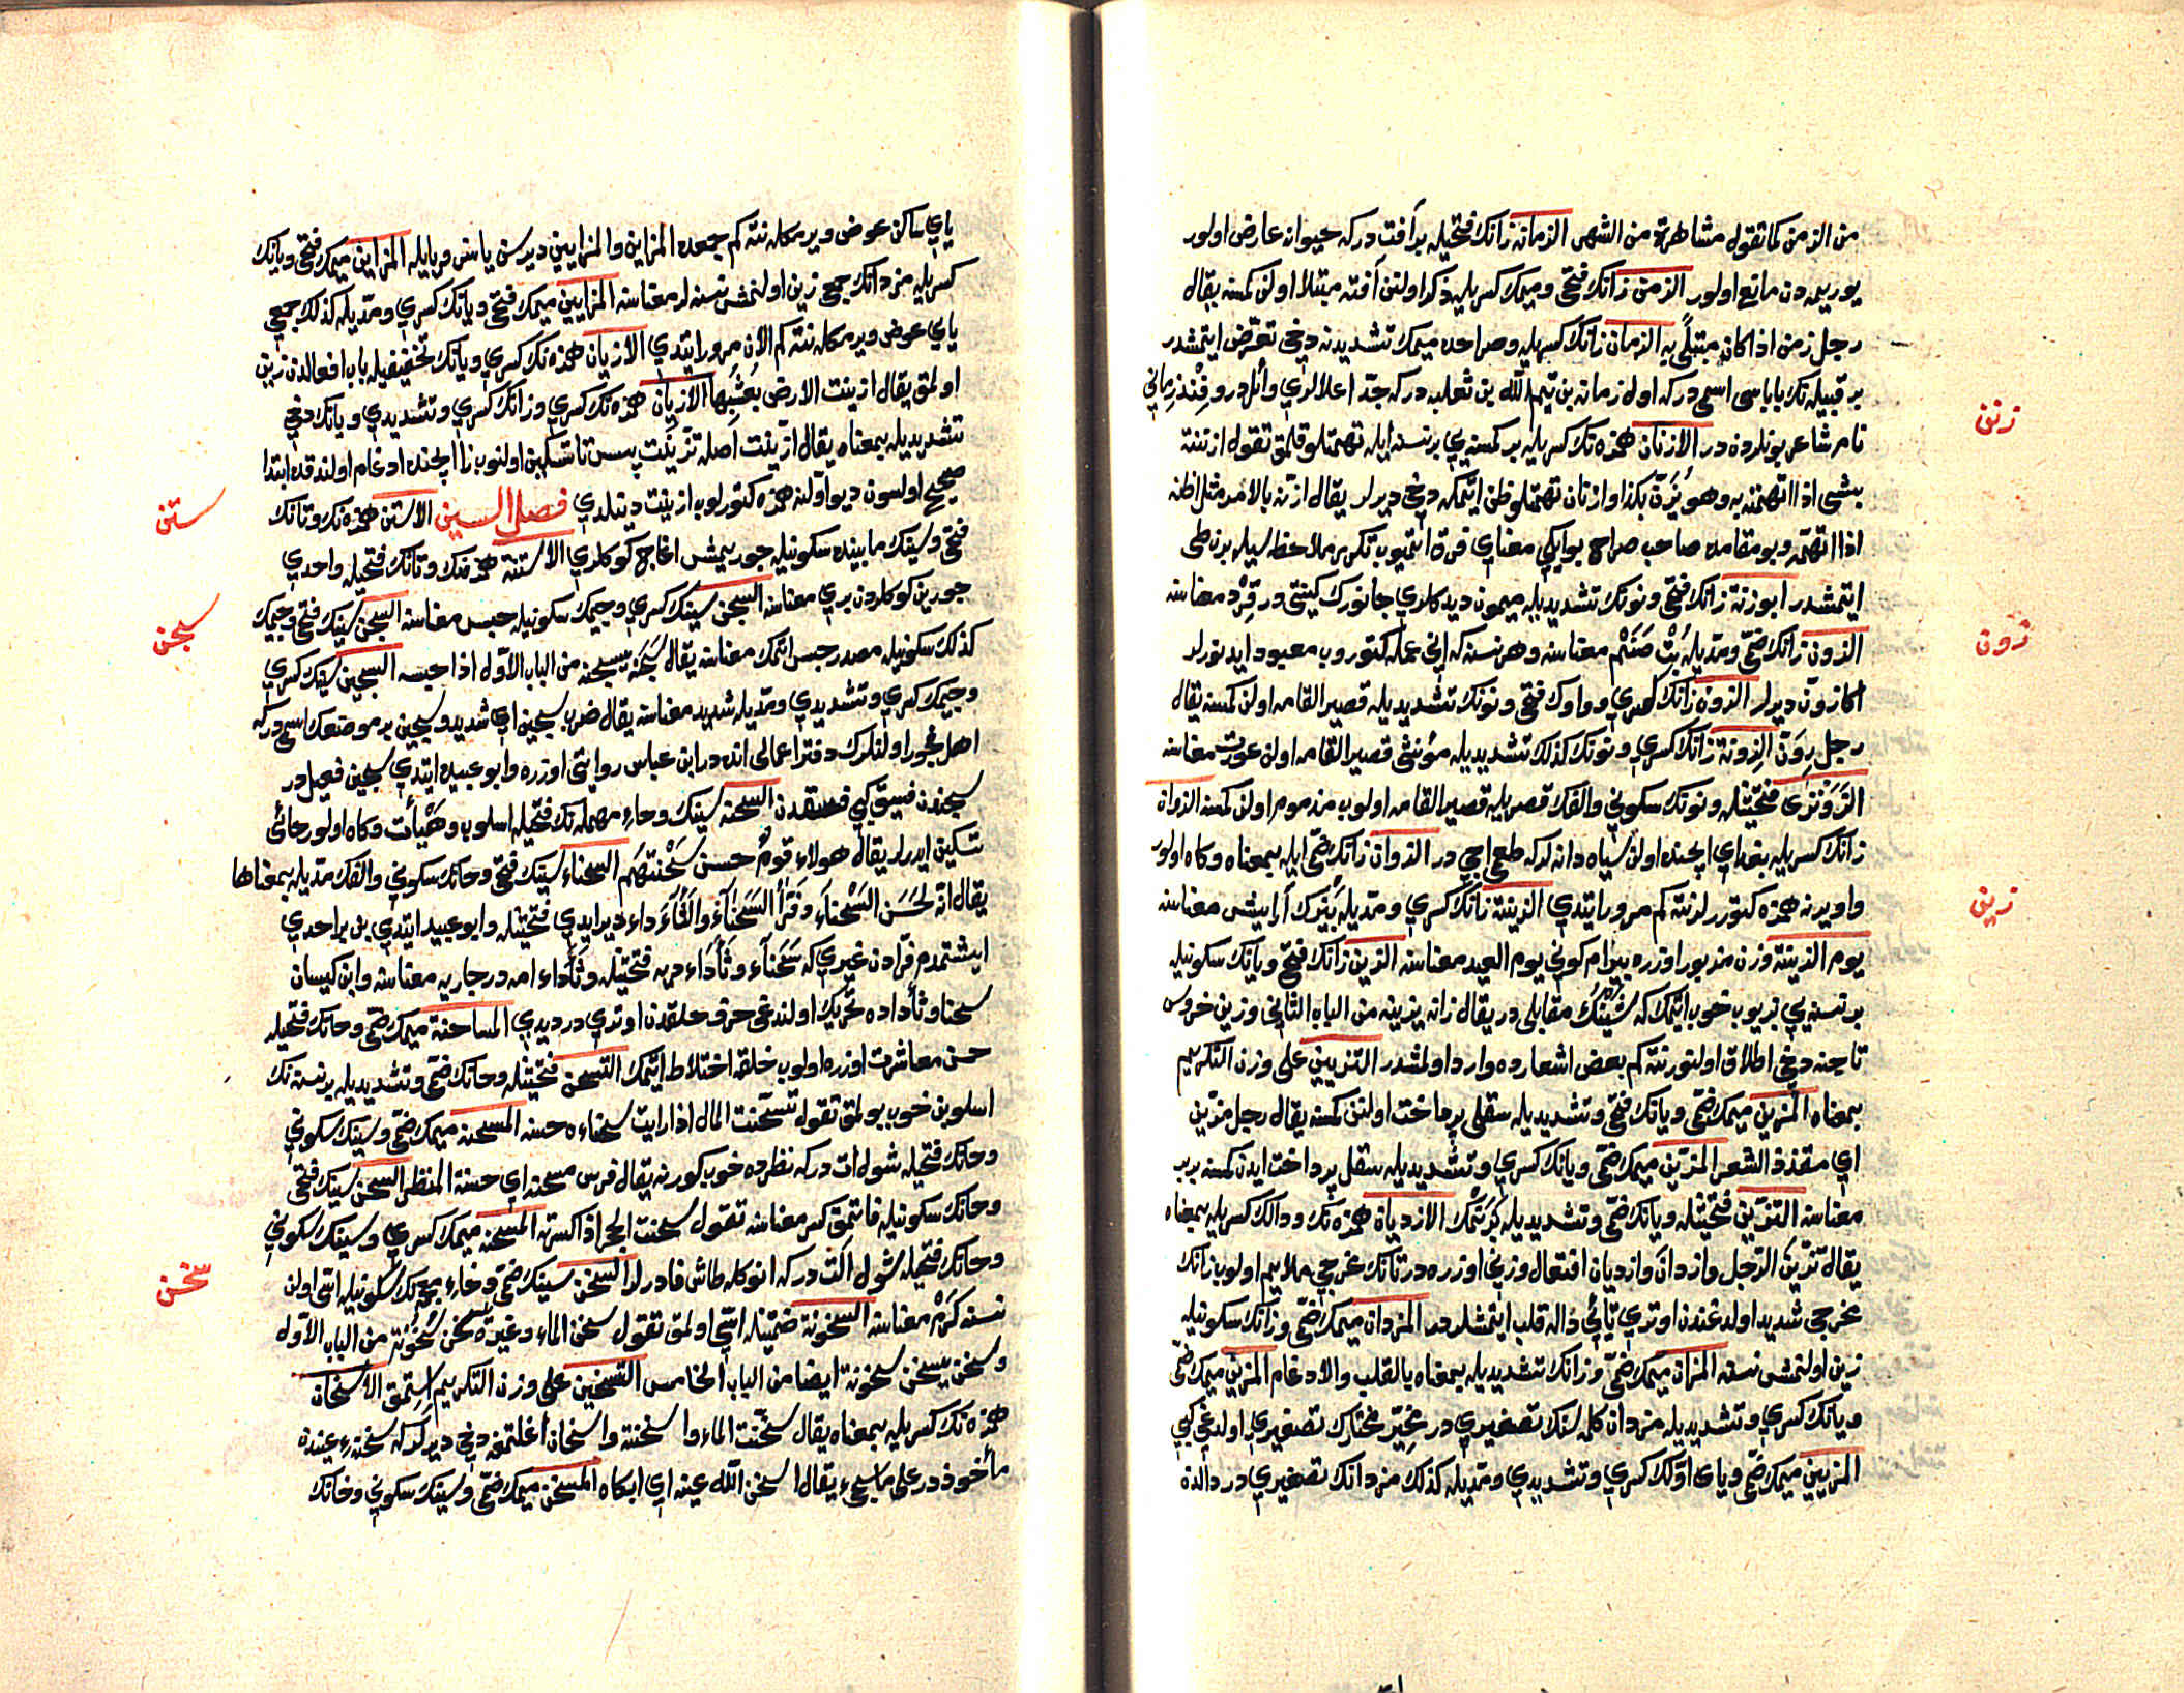 من الزمن كما تقول مشاهرة من الشهر الزمانه زانك فتحيله بر آفت در كه حيوانه عارض اولور
يوريمه دن مانع اولور الزمن زانك فتحى وميمك كسريله ذكر اولنن آفته مبتلا اولن كمسنه يقال
رجل زمن اذا كان مبتلى به الزمان زانك كسريله وصراحده ميمك تشديدنه دخى تعرض ايتمشدر
بر قبيله نك باباسى اسمى در كه اول زمانه بن تيم الله بن ثعلبه در كه جد اعلالرى وائل در وفند زمانى
زنن
نام شاعر بونلردندر الازنان همزه نك كسريله بر كمسنه يى بر نسنه ايله تهمتلو قلمق تقول ازننته
بشى اذا اتهمته به وهو يزن بكذا وازنان تهمتلو ظن ايتمكه دخى ديرلر يقال ازنه بالامر مثل اظنه
اذا اتهمه وبو مقامده صاحب صراح بو ايكى معنايى فرق ايتميوب تكرر ملاحظه سيله برن طى
ايتمشدر ابو زنة زانك فتحى ونونك تشديديله ميمون ديدكلرى جانورك كنيتى در قرد معناسنه
زون
الزون زانك ضمى ومديله بت صنم معناسنه وهر نسنه كه انى عمله كتوروب معبود ايدنورلر
اكا زون ديرلر الزون زانك كسرى وواوك فتحى ونونك تشديديله قصير القامه اولن كمسنه يقال
رجل زون الزونة زانك كسرى ونونك كذلك تشديديله مؤنثى قصير القامه اولن عورت معناسنه
الزونزى فتحتيله ونونك سكونى والفك قصريله قصير القامه اولوب مذموم اولن كمسنه الزوان
زانك كسريله بغداى ايچنده اولن سياه دانه لر كه طعمى اجى در الزوان زانك ضمى ايله بمعناه وكاه اولور
زين
واو يرنه همزه كتوررلر نته كم مرور ايتدى الزينة زانك كسرى ومديله بزك آرايش معناسنه
يوم الزينة وزن مزبور اوزره بيرام كونى يوم العيد معناسنه الزين زانك فتحى ويانك سكونيله
بر نسنه يى بزيوب خوب ايتمك كه شينك مقابلى در يقال زانه يزينه من الباب الثانى وزين خروس
تاجنه دخى اطلاق اولنور نته كم بعض اشعارده وارد اولمشدر التزيين على وزن التكريم
بمعناه المزين ميمك ضمى ويانك فتحى وتشديديله سقلى پرداخت اولنن كمسنه يقال رجل مزين
اى مقذذ الشعر المزين ميمك ضمى ويانك كسرى وتشديديله سقل پرداخت ايدن كمسنه بربر
معناسنه التزين فتحتيله ويانك ضمى وتشديديله بزنمك الازديان همزه نك ودالك كسريله بمعناه
يقال تزين الرجل وازدان وازديان افتعال وزنى اوزره در تانك مخرجى ملايم اولوب زانك
مخرجى شديد اولدغندن اوترى تايى داله قلب ايتمشلردر المزدان ميمك ضمى وزانك سكونيله
زين اولنمش نسنه المزان ميمك ضمى وزانك تشديديله بمعناه بالقلب والادغام المزين ميمك ضمى
ويانك كسرى وتشديديله مزدان كلمه سنك تصغيرى در مخير مختارك تصغيرى اولدغى كبى
المزيين ميمك ضمى وياى اولك كسرى وتشديدى ومديله كذلك مزدانك تصغيرى در دالدن
ياى ساكن عوض ويرمكله نته كم جمعده المزاين والمزايين ديرسن ياسز و يا ايله المزاين ميمك فتحى ويانك
كسريله مزدانك جمعى زين اولنمش نسنه لر معناسنه المزايين ميمك فتحى ويانك كسرى ومديله كذلك جمعى
ياى عوض ويرمكله نته كم الان مرور ايتدى الازيان همزه نك كسرى ويانك تخفيفيله باب افعالدن زين
اولمق يقال ازينت الارض بعشبها الازيان همزه نك كسرى وزانك كسرى وتشديدى ويانك دخى
تشديديله بمعناه يقال ازينت اصله تزينت پس تا تسكين اولنوب زا ايچنده ادغام اولندقده ابتدا
ستن
صحيح اولسون ديو اولنه همزه كتورلوب ازينت دينلدى فصل السين الاستن همزه نك وتانك
فتحى وسينك مابينده سكونيله چوريمش اغاج كوكلرى الاستنة همزه نك وتانك فتحيله واحدى
سجن
چورين كوكلردن برى معناسنه السجن سينك كسرى وجيمك سكونيله حبس معناسنه السجن سينك فتحى وجيمك
كذلك سكونيله مصدر حبس ايتمك معناسنه يقال سجنه يسجنه من الباب الاول اذا حبسه السجين سينك كسرى
وجيمك كسرى وتشديدى ومديله شديد معناسنه يقال ضرب سجين اى شديد وسجين بر موضعك اسمى در كه
اهل فجور اولنلرك دفتر اعمالى انده در ابن عباس روايتى اوزره وابو عبيده ايتدى سجين فعيل در
سجندن فسيق كبى فسقدن السحنة سينك وحاء مهمله نك فتحيله اسلوب وهيأت وكاه اولور حائى
تسكين ايدرلر يقال هولاء قوم حسن سحنتهم السحناء سينك فتحى وحانك سكونى والفك مديله بمعناها
يقال انه لحسن السحناء وفرأ السحناء والثأداء ديرايدى فتحتيله وابو عبيد ايتدى بن بر احدى
ايشتمدم فرادن غيرى كه سحناء وثأداء ديه فتحتيله وثأداء امه در جاريه معناسنه وابن كيسان
سحنا وثأداده تحريك اولندغى حرف حلقدن اوترى در ديدى المساحنة ميمك ضمى وحانك فتحيله
حسن معاشرت اوزره اولوب خلقه اختلاط ايتمك التسحن فتحتيله وحانك ضمى وتشديديله بر نسنه نك
اسلوبن خوب بولمق تقول تسحنت المال اذا رايت سحناءه حسنه المسحنه ميمك ضمى وسينك سكونى
وحانك فتحيله شول ات در كه نظرده خوب كورنه يقال فرس مسحنه اى حسنة المنظر السحن سينك فتحى
وحانك سكونيله قاتمق كسر معناسنه تقول سحنت الحجر اذا كسرته المسحنه ميمك كسرى وسينك سكونى
سخن
وحانك فتحيله شول آلت در كه انوكله طاش قادرلر السخن سينك ضمى وخاء معجمه نك سكونيله اسى اولن
نسنه كرم معناسنه السخونة ضمتيله اسى اولمق تقول سخن الماء وغيره يسخن سخونة من الباب الاول
وسخن يسخن سخونة ايضا من الباب الخامس التسخين على وزن التكريم استمق الاسخان
همزه نك كسريله بمعناه يقال سخنت الماء واسخنته واسخان اغلتمغه دخى ديرلر كه سخنة عينده
مأخوذ در على ما سيجىء يقال اسخن الله عينه اى ابكاه المسخن ميمك ضمى وسينك سكونى وخانك